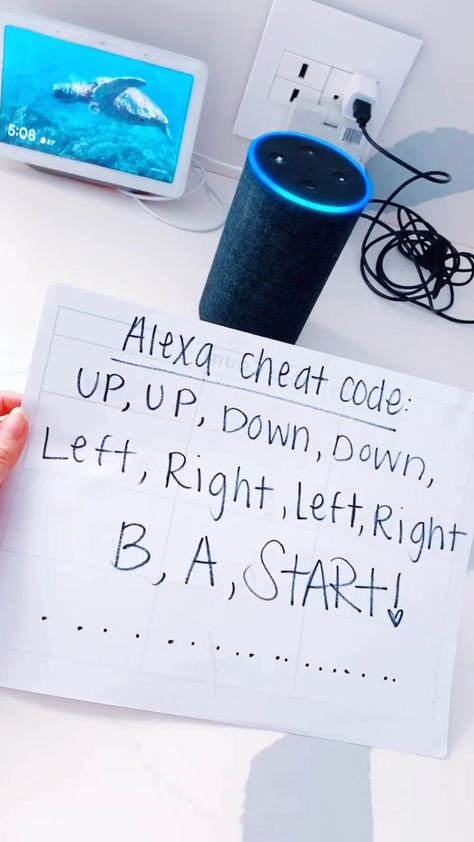 5:08
Alexa cheat code:
UP, UP, DOWN, DOWN,
Left, Right, Left, Right
B, A, START!
....................